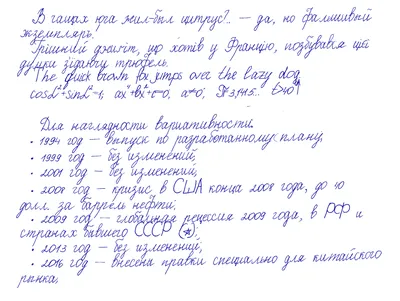 В чащах юга жил-был цитрус?.. — да, но фальшивый
экземпляръ.
Грішний джиґіт, що хотів у Францію, позбувався цієї
думки з'ївши трюфель.
The quick brown fox jumps over the lazy dog
• 1994 год — выпуск по разработанному плану;
• 1999 год — без изменений;
• 2001 год — без изменений;
• 2008 год — кризис, в США конца 2008 года, до 40
долл. за баррель нефти;
• 2009 год — глобальная рецессия 2009 года, в РФ и
странах бывшего СССР
• 2013 год — без изменений;
• 2016 год — внесена правки специально для китайского
рынка;
Для наглядности вариативности: